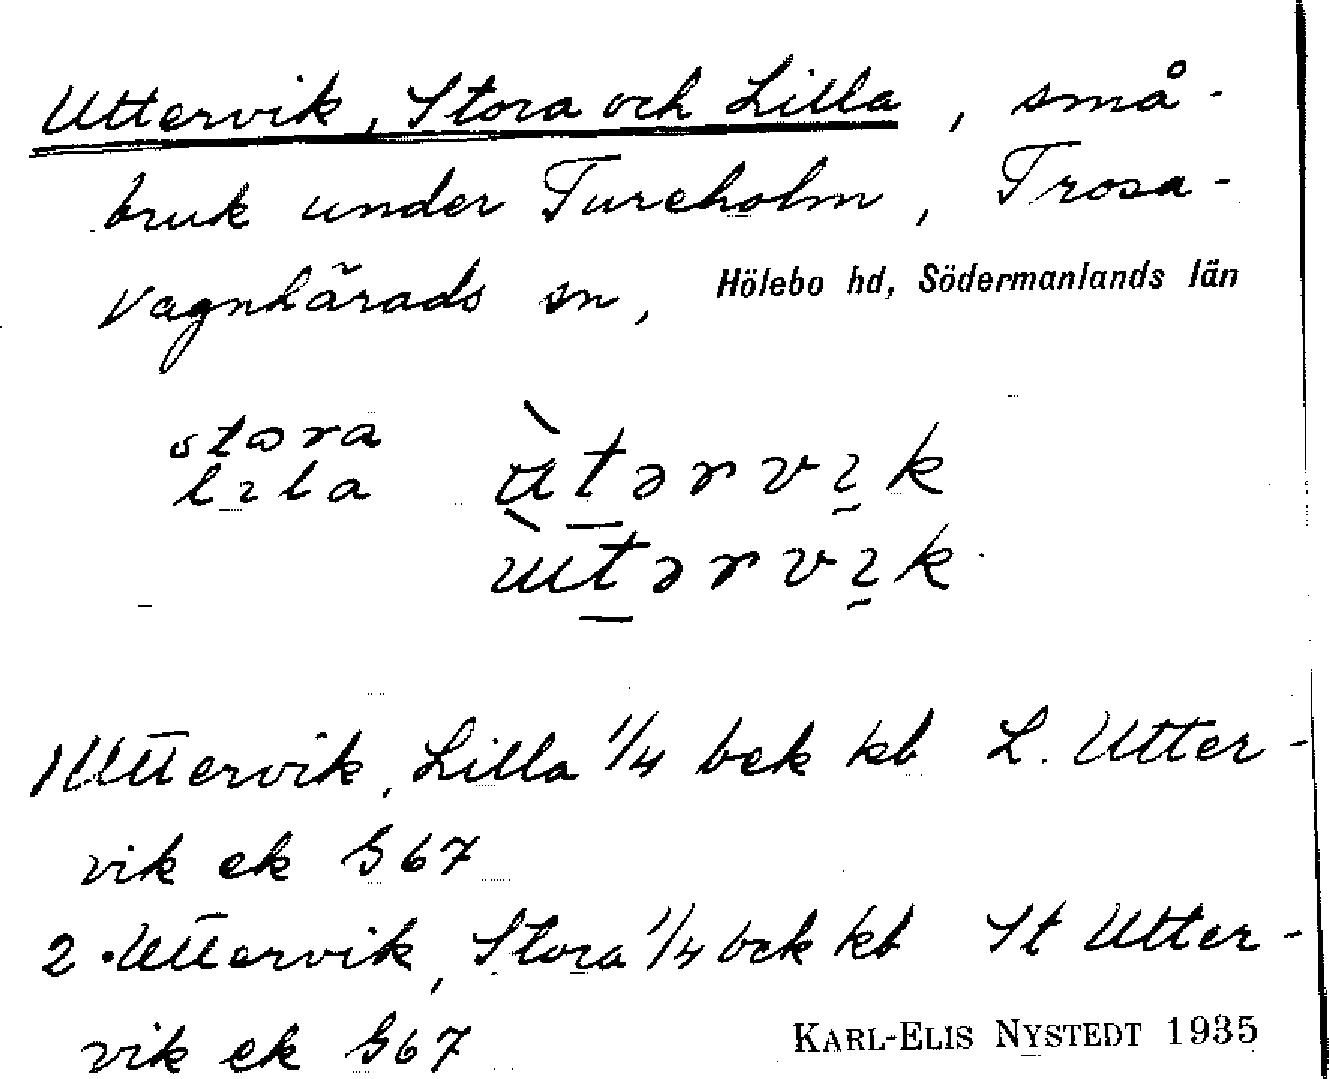 Uttervik, Stora och Lilla, små-
bruk under Tureholm, Trosa-
Vagnhärads sn, Hölebo hd, Södermanlands län
stora
lɩla
ɯ̀tərvɩk
ɯ̀tərvɩk
1 Uttervik, Lilla 1/4 bek kb L. Utter-
vik ek G67
2. Uttervik, Stora 1/4 bek kb St Utter-
vik ek G67
KARL-ELIS NYSTEDT 1935